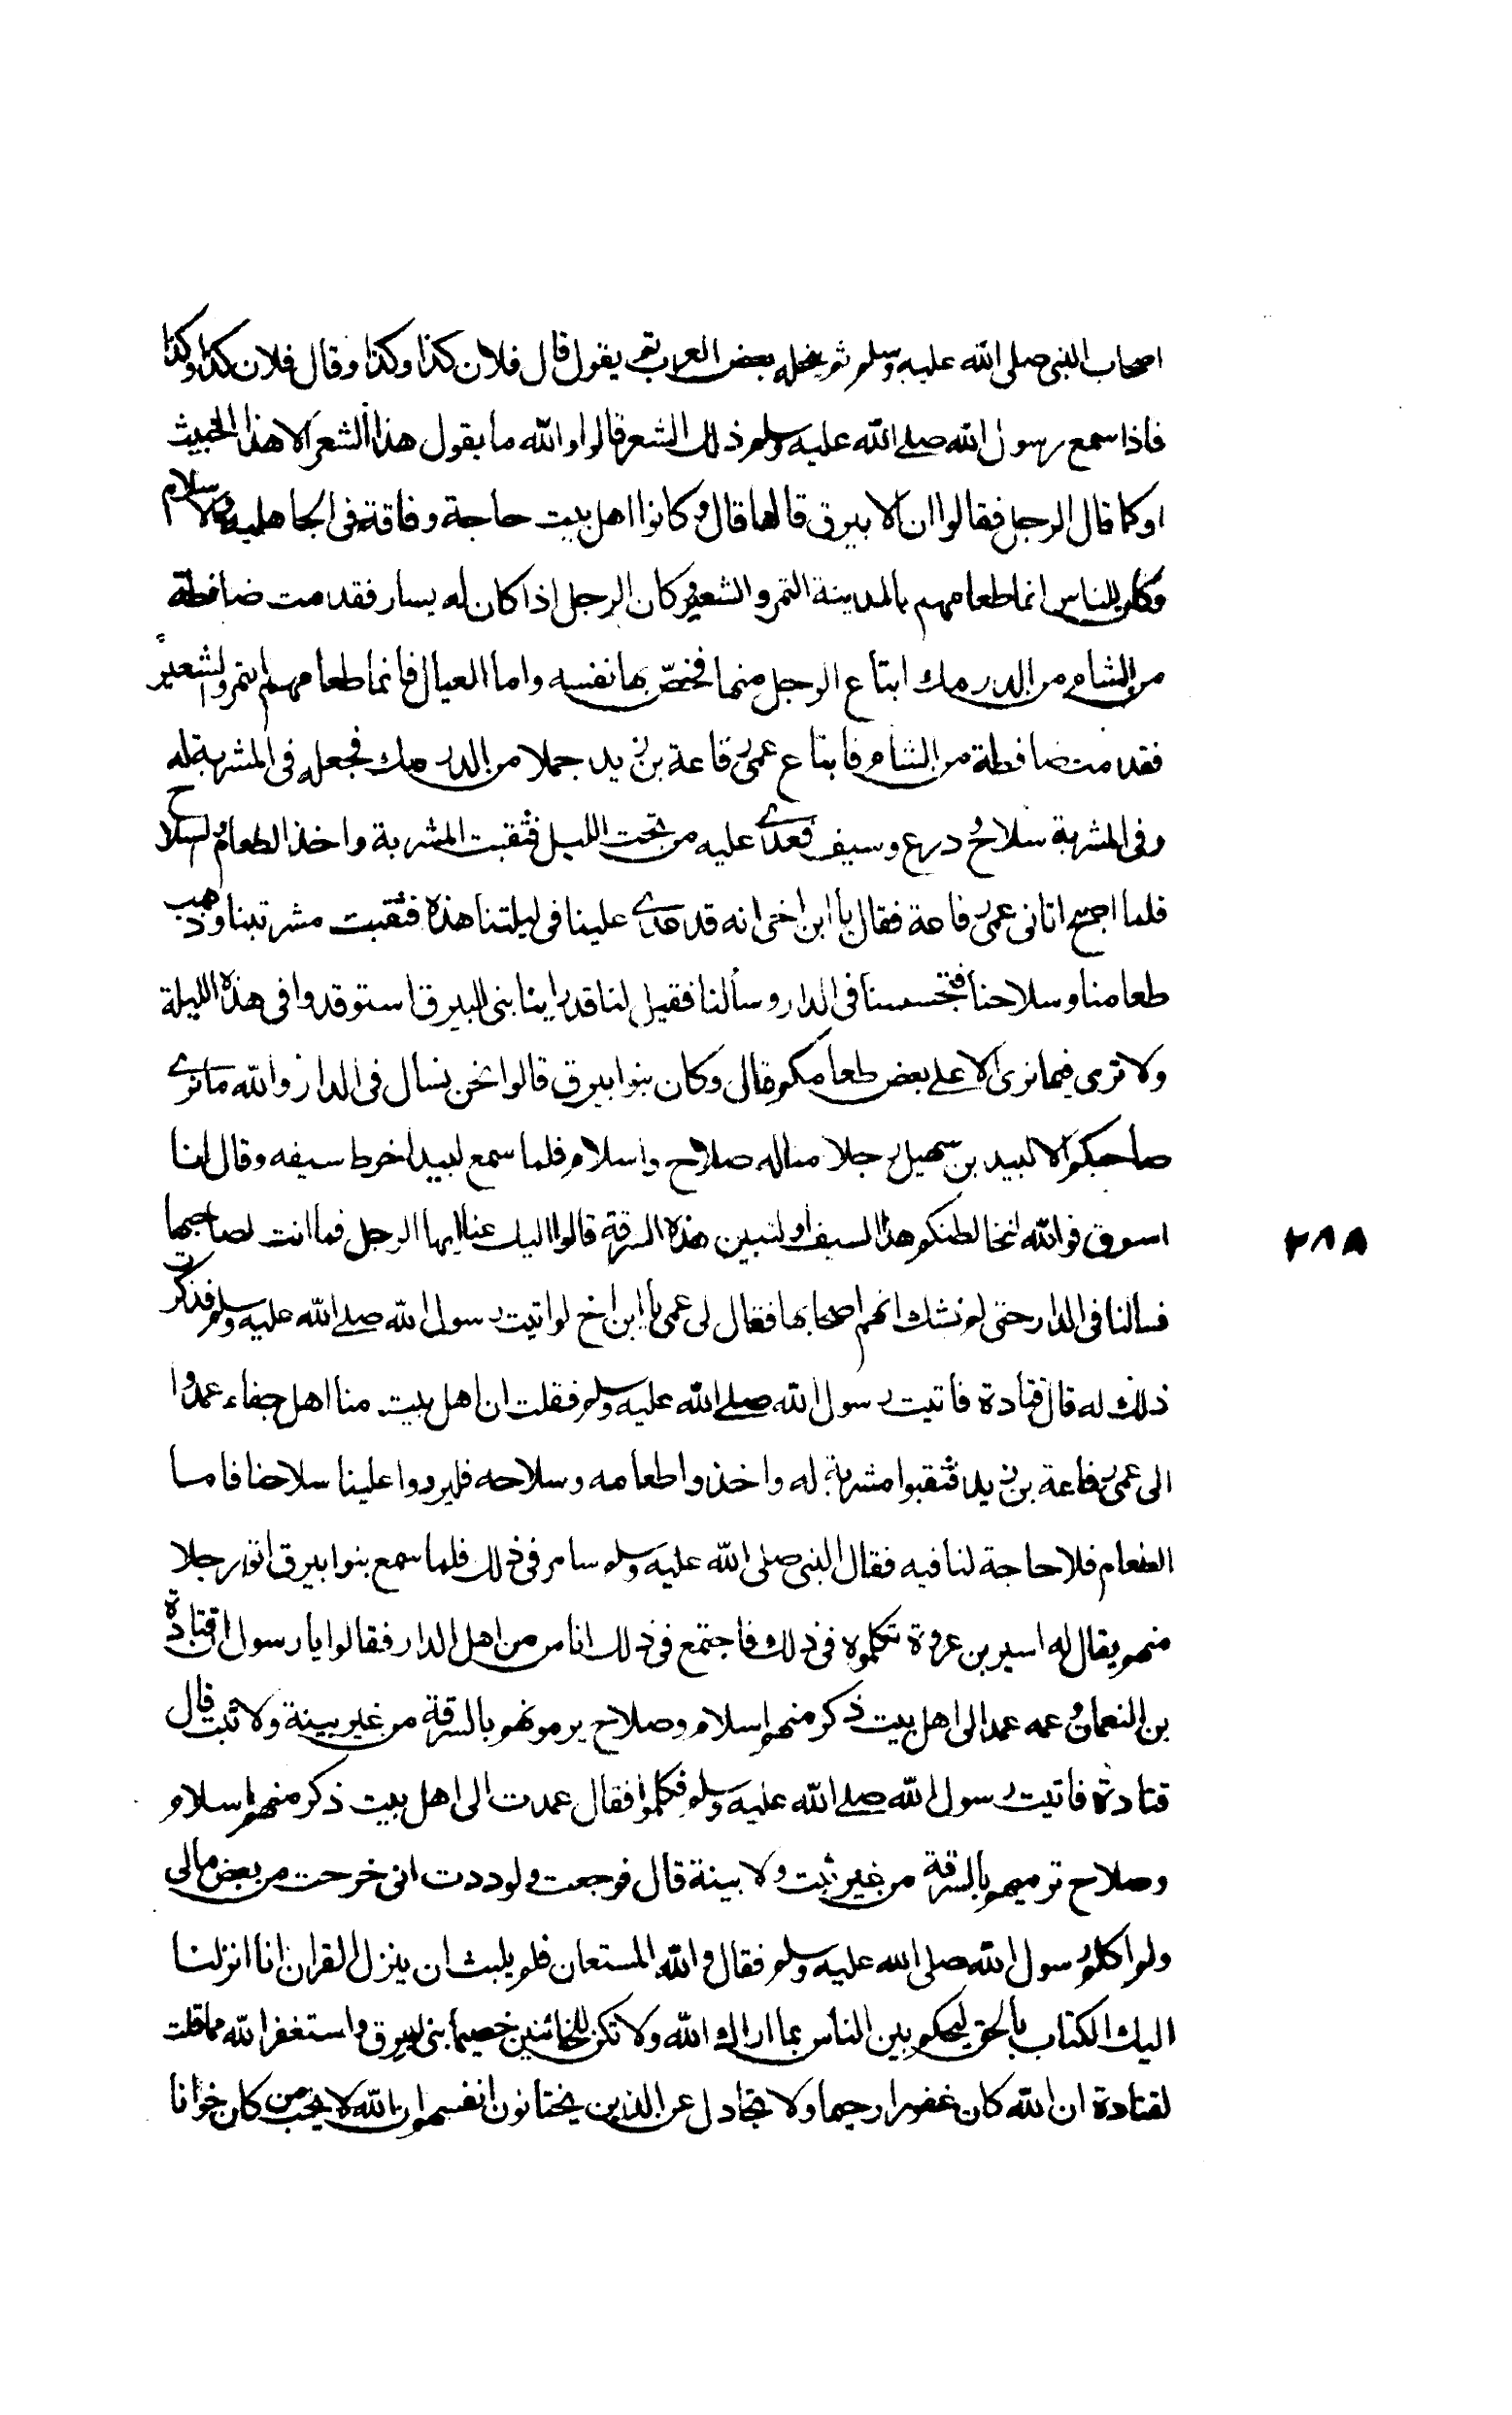 اصحاب النبى صلى الله عليه وسلم ثم ينحله بعض العرب ثم يقول قال فلان كذا وكذا وقال فلان كذا وكذا
فاذا سمع رسول الله صلے الله عليه وسلم ذلك الشعر قالوا والله ما يقول هذا الشعر الا هذا الخبيث
اوكما قال الرجل فقالوا ان الابيرق قالها قال وكانوا اهل بيت حاجة وفاقة فى الجاهلية والاسلام
وكان الناس انما طعامهم بالمدينة التمر والشعير وكان الرجل اذا كان له يسار فقدمت ضافطة
من الشام من الدرمك ابتاع الرجل منها فخصّ بها نفسه واما العيال فانما طعامهم التمر والشعير
فقدمت ضافطة من الشام فابتاع عمى رفاعة بن زيد جملا من الدرمك فجعله فى المشربة له
وفى المشربة سلاح درع وسيف فعدے عليه من تحت الليل فثقبت المشربة واخذ الطعام والسلاح
فلما اصبح اتانى عمى رفاعة فقال يا ابن اخى انه قد عدے علينا فى ليلتنا هذه فثقبت مشربتنا وذهب
طعامنا وسلاحنا فتحسسنا فى الدار وسألنا فقيل لنا قد راينا بنى البيرق استوقدوا فى هذه الليلة
ولا نرى فيما نرى الا علے بعض طعامكم قال وكان بنوا بيرق قالوا نحن نسال فى الدار والله ما نرے
صاحبكم الا لبيد بن سهيل رجلا مناله صلاح واسلام فلما سمع لبيد اخرط سيفه وقال انا
اسرق فوالله لنخالطنكم هذا السيف او لتبين هذه السرقة قالوا اليك عنا ايها الرجل فما انت لصاحبها
فسألنا فى الدار حتى لم نشك انهم اصحابها فقال لى عمى يا ابن اخ لو اتيت رسول الله صلے الله عليه وسلم فذكرت
ذلك له قال قتادة فاتيت رسول الله صلے الله عليه وسلم فقلت ان اهل بيت منا اهل جفاء عمدوا
الى عمى رفاعة بن زيد فثقبوا مشربة له واخذوا طعامه وسلاحه فليردوا علينا سلاحنا فاما
الطعام فلا حاجة لنا فيه فقال النبى صلى الله عليه وسلم سامر فى ذلك فلما سمع بنوا بيرق اتوا رجلا
منهم يقال له اسير بن عروة تكلموه فى ذلك فاجتمع فى ذلك اناس من اهل الدار فقالوا يا رسول ان قتادة
بن النعمان وعمه عمدا الى اهل بيت ذكر منهم اسلام وصلاح يرمونهم بالسرقة من غير بينة ولا ثبت قال
قتادة فاتيت رسول الله صلے الله عليه وسلم فكلموا فقال عمدت الى اهل بيت ذكر منهم اسلام
وصلاح ترميهم بالسرقة من غير ثبت ولا بينة قال فرجعت ولوددت انى خرجت من بعض مالى
ولم اكلم رسول الله صلى الله عليه وسلم فقال والله المستعان فلم يلبث ان ينزل القران انا انزلنا
اليك الكتاب بالحق ليحكم بين الناس بما اراك الله ولا تكن للخائنين خصيما بنى بيرق واستغفر الله مما قلت
لقتادة ان الله كان غفورا رحيما ولا تجادل عن الذين يختانون انفسهم ان الله لا يحب من كان خوانا
٢٨٨